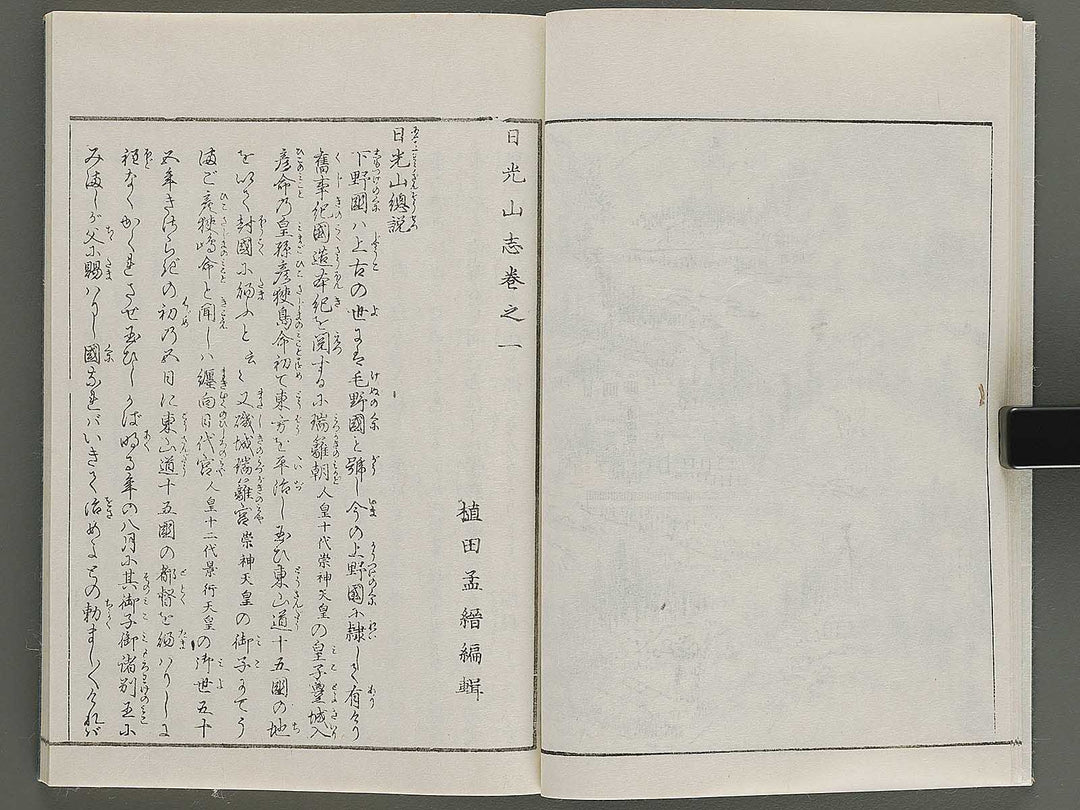 日光山志巻之一
植田孟縉編輯
日光山總説
下野國ハ上古の世にハ毛野國と號し今の上野國に隷して有けり
舊事紀國造本紀を閲するに瑞籬朝人皇十代崇神天皇の皇子豊城入
彦命乃皇孫彦狭島命初て東方を平治し玉ひ東山道十五國の地
を以て封國に給ふと云く又磯城瑞籬宮崇神天皇の御子にてう
彦狭嶋命と聞しハ纏向日代宮人皇十二代景行天皇の御世五十
五年きさらきの初乃五日に東山道十五國の都督を給ハりしに
程なくかくれさせ玉ひしかば明る年の八月に其御子御諸別王に
み父に賜ハりし國なれバいきて治めよとの勅ましくけれバ